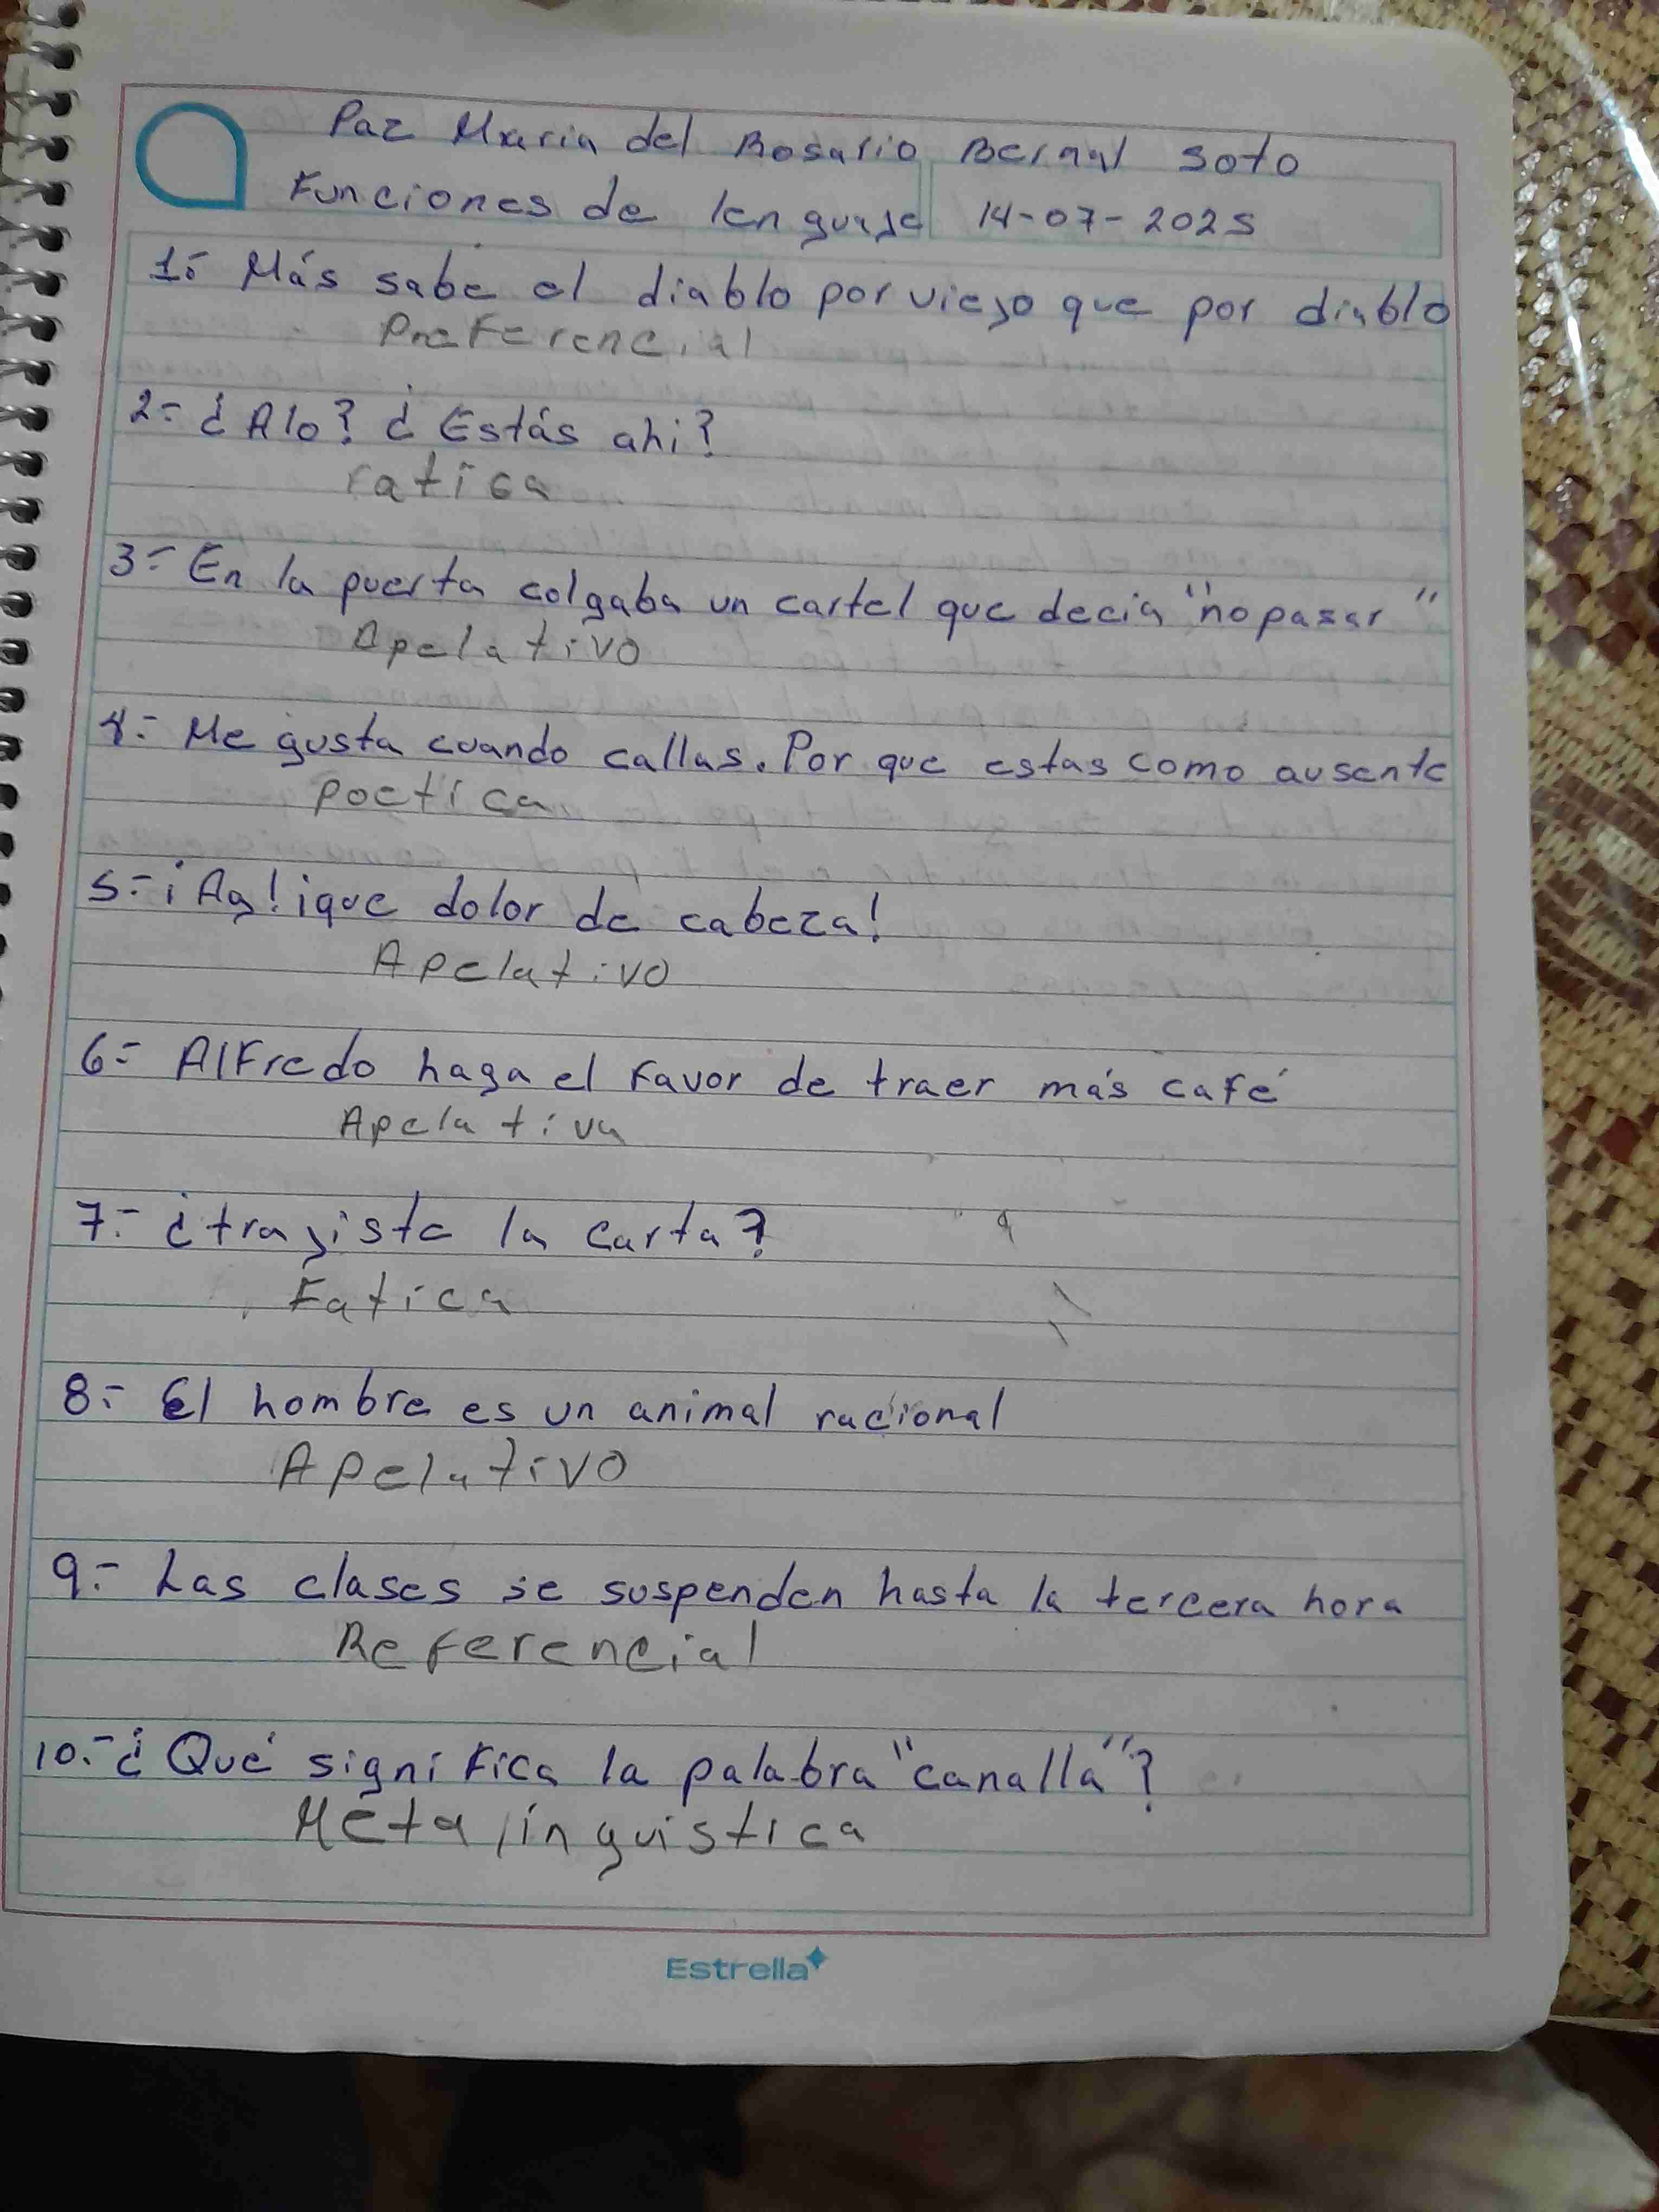 Paz Maria del Rosario Bernal Soto
Funciones de lenguaje 14-07-2025
1.- Más sabe el diablo por viejo que por diablo
Preferencial
2- ¿Alo? ¿Estás ahi?
ratica
3- En la puerta colgaba un cartel que decia "no pasar"
Apelativo
4- Me gusta cuando callas. Por que estas como ausente
poetica
5-¡Ay! ¡que dolor de cabeza!
Apelativo
6- Alfredo haga el favor de traer más café
Apelativa
7.- ¿trayiste la carta?
Fatica
8.- El hombre es un animal racional
Apelativo
9.- Las clases se suspenden hasta la tercera hora
Referencial
10.- ¿Qué significa la palabra "canalla"?
Metalinguistica
Estrella